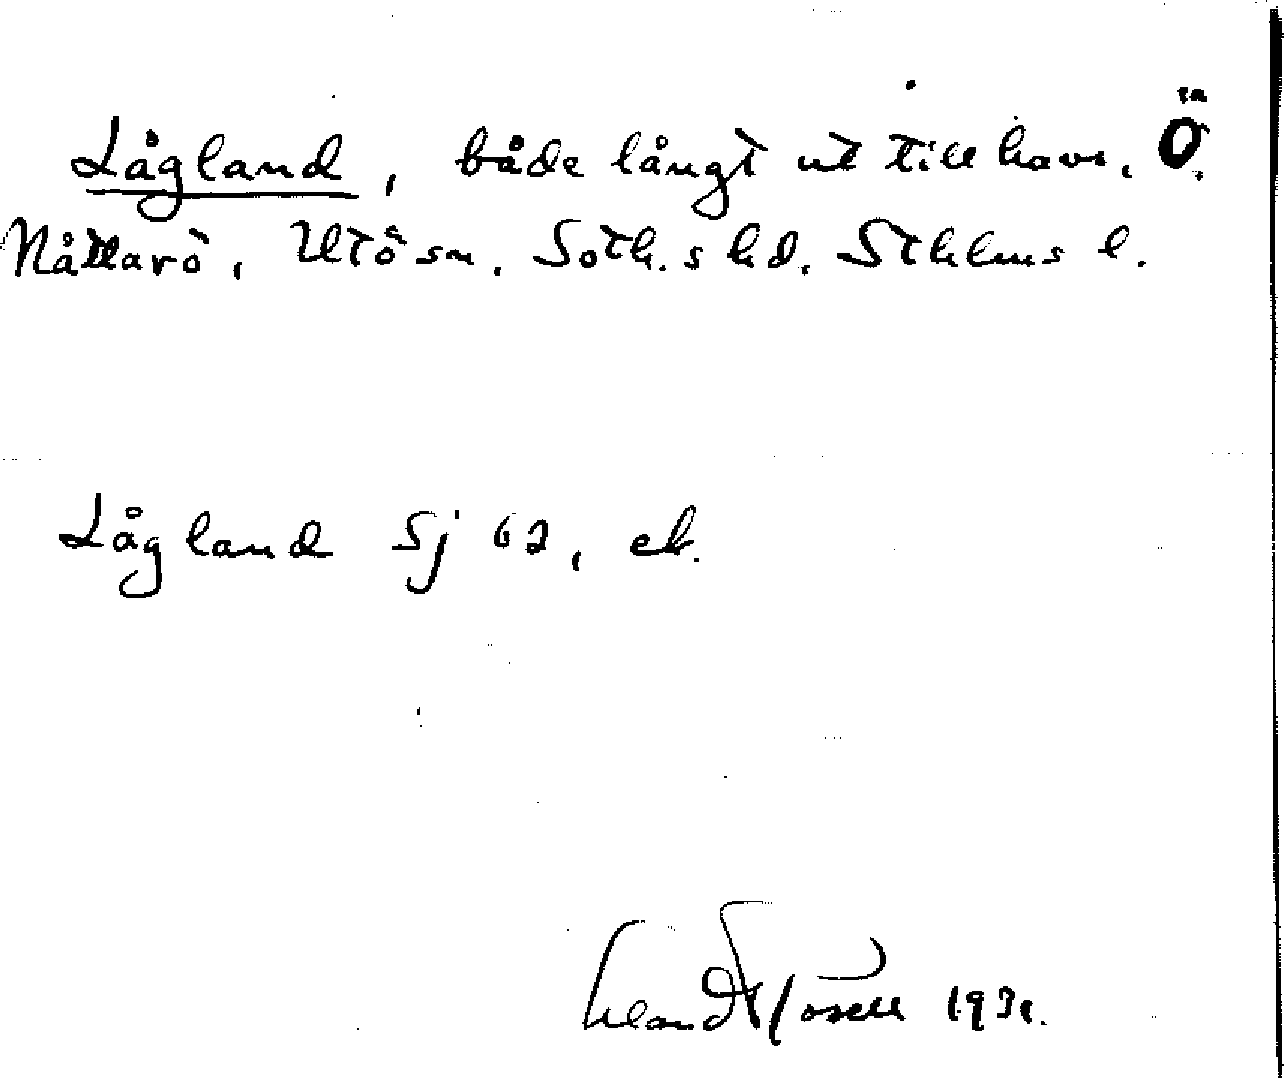 Lågland, både långt ut till havs, Ö.
Nåttarö, Utö sn. Soth.s hd, Sthlms l.
Lågland Sj 62, ek.
Erland Rosell 1931.